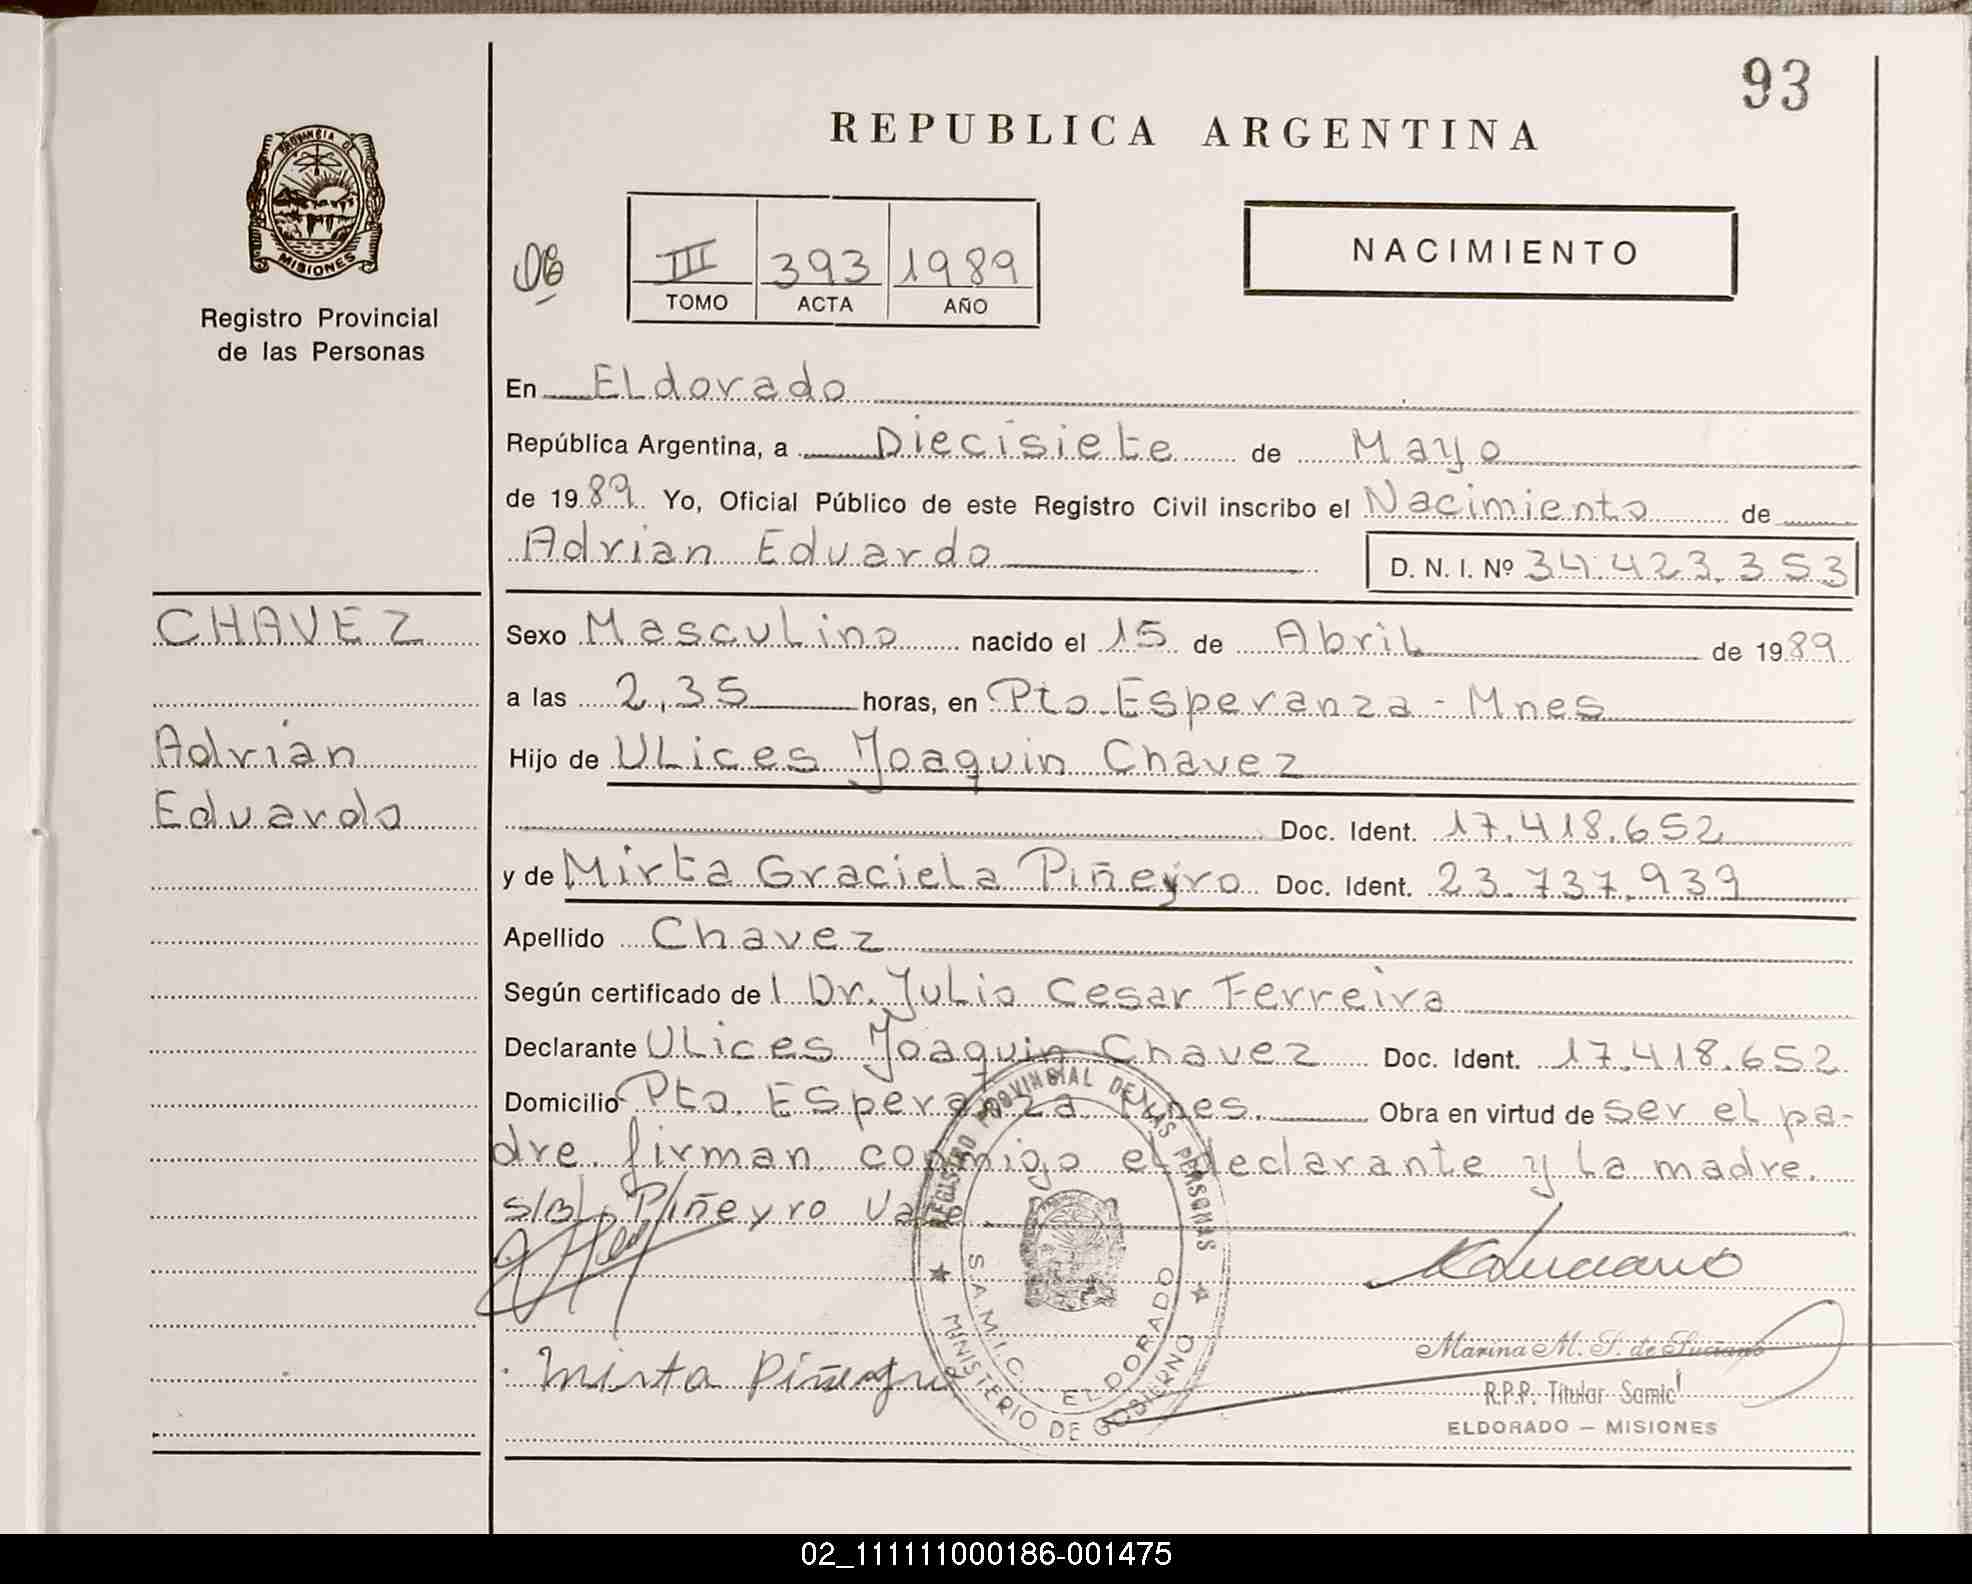 93
REPUBLICA ARGENTINA
PROVINCIA DE
MISIONES
Registro Provincial
de las Personas
III 393 1989
TOMO ACTA AÑO
NACIMIENTO
En Eldorado
República Argentina, a Diecisiete de Mayo
de 1989. Yo, Oficial Público de este Registro Civil inscribo el Nacimiento de
Adrian Eduardo D. N. I. Nº 34.423.353
CHAVEZ
Adrian
Eduardo
Sexo Masculino nacido el 15 de Abril de 1989
a las 2,35 horas, en Pto Esperanza - Mnes
Hijo de Ulices Joaquin Chavez
Doc. Ident. 17.418.652
y de Mirta Graciela Piñeyro Doc. Ident. 23.737.939
Apellido Chavez
Según certificado del Dr. Julio Cesar Ferreira
Declarante Ulices Joaquin Chavez Doc. Ident. 17.418.652
Domicilio Pto. Esperanza Mnes. Obra en virtud de ser el pa-
dre. firman conmigo el declarante y la madre.
s/b/. Piñeyro Vale.
REGISTRO PROVINCIAL DE LAS PERSONAS
S.A.M.I.C. ELDORADO
MINISTERIO DE GOBIERNO
Mirta Piñeyro
Marina M. S. de Luciano
R.P.P. Titular Samic
ELDORADO – MISIONES
02_111111000186-001475